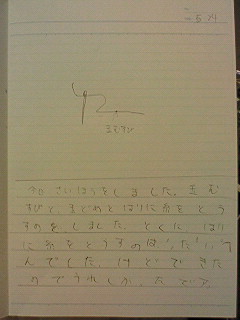 5.29
玉むすび
今日さいほうをしました。玉む
すびと、玉どめとはりに糸をとう
すのをしました。とくに、はり
に糸をとうすのが
んでした。けどできた
のでうれしかったです